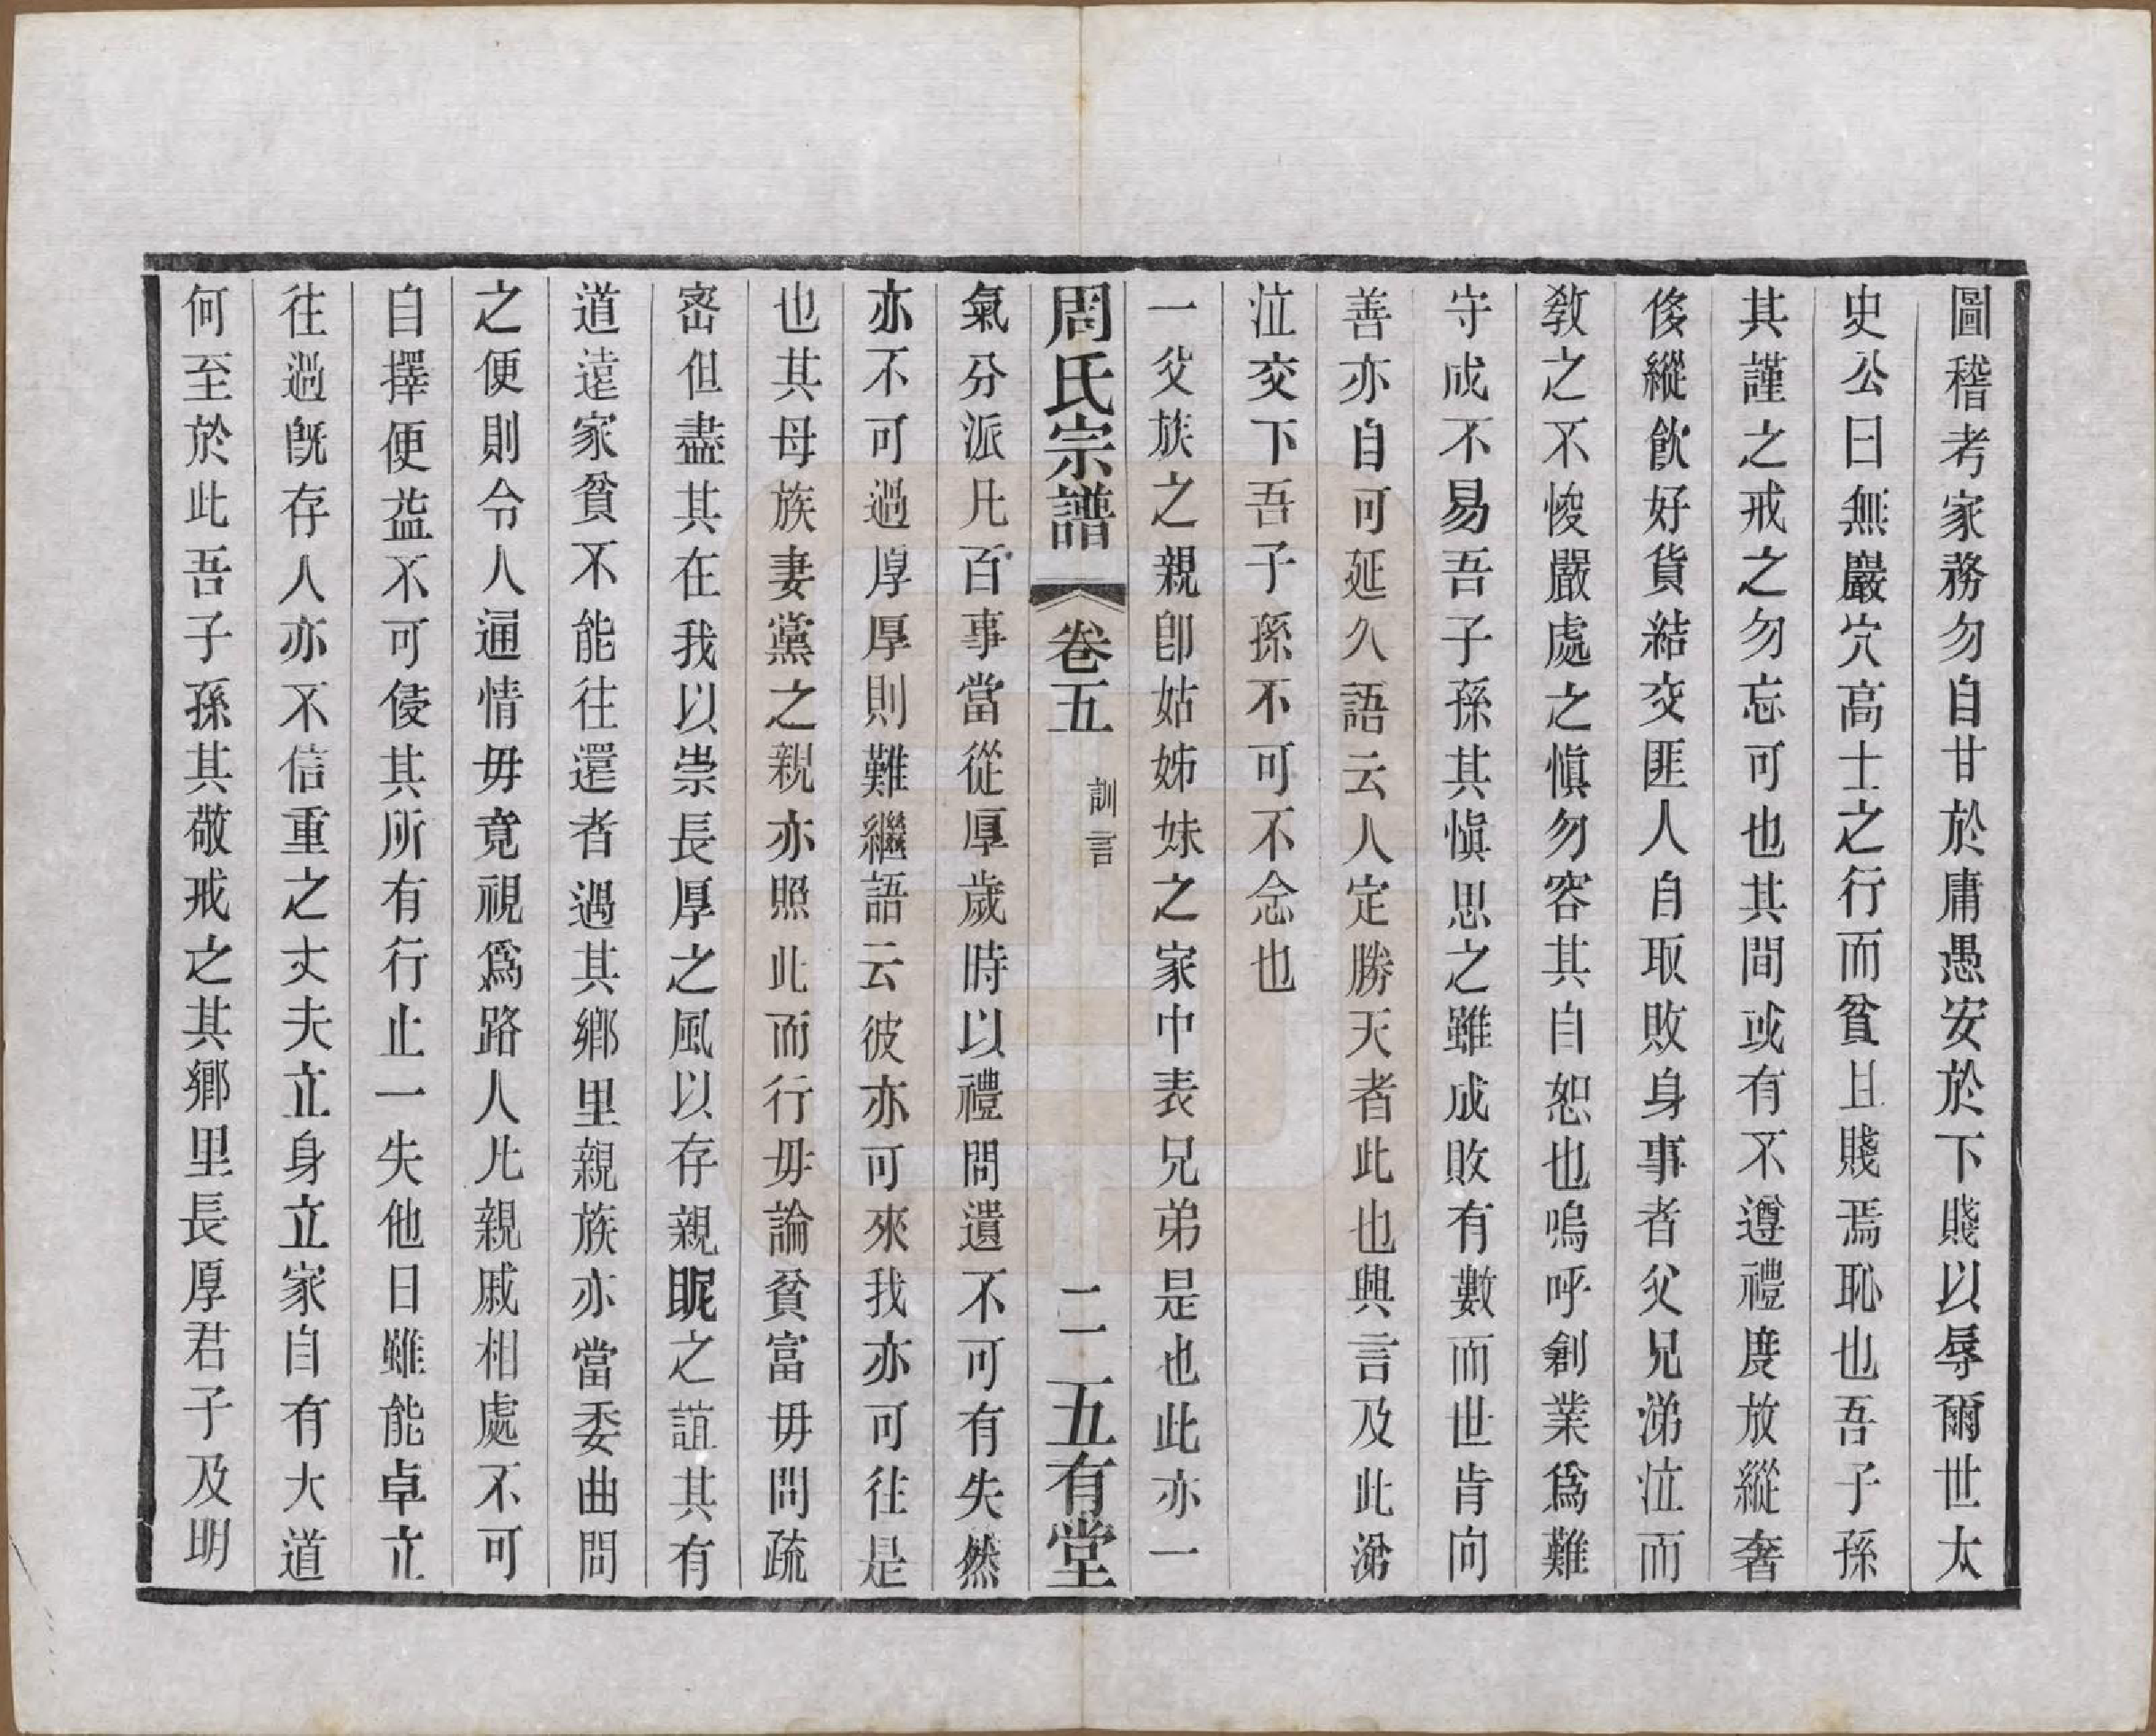 圖稽考家務勿自甘於庸愚安於下賤以辱爾世太
史公曰無巖穴高士之行而貧且賤焉恥也吾子孫
其謹之戒之勿忘可也其間或有不遵禮度放縱奢
侈縱飲好貨結交匪人自取敗身事者父兄涕泣而
教之不悛嚴處之愼勿容其自恕也嗚呼創業爲難
守成不易吾子孫其愼思之雖成敗有數而世肯向
善亦自可延久語云人定勝天者此也興言及此涕
泣交下吾子孫不可不念也
一父族之親卽姑姊妹之家中表兄弟是也此亦一
周氏宗譜 卷五 訓言 二 五有堂
氣分派凡百事當從厚歲時以禮問遺不可有失然
亦不可過厚厚則難繼語云彼亦可來我亦可往是
也其母族妻黨之親亦照此而行毋論貧富毋問疏
宻但盡其在我以崇長厚之風以存親昵之誼其有
道遠家貧不能往還者遇其鄉里親族亦當委曲問
之便則令人通情毋竟視爲路人凡親戚相處不可
自擇便益不可侵其所有行止一失他日雖能卓立
往過旣存人亦不信重之丈夫立身立家自有大道
何至於此吾子孫其敬戒之其鄉里長厚君子及明